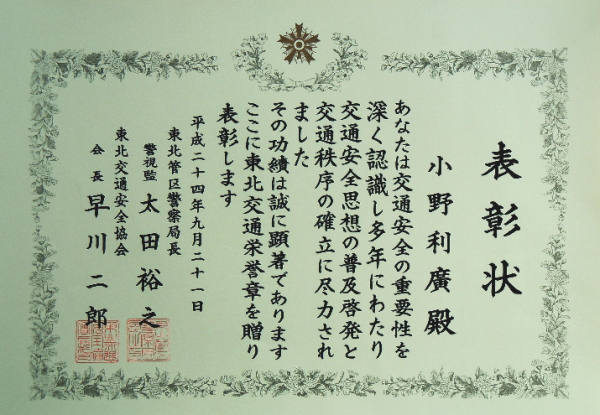 表彰状
小野利廣殿
あなたは交通安全の重要性を
深く認識し多年にわたり
交通安全思想の普及啓発と
交通秩序の確立に尽力され
ました
その功績は誠に顕著であります
ここに東北交通栄誉章を贈り
表彰します
平成二十四年九月二十一日
東北管区警察局長
警視監 太田裕之
東北交通安全協会
会長 早川二郎